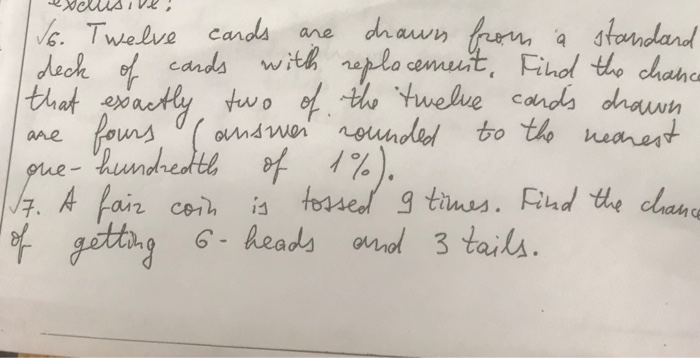 exclusive?
√6. Twelve cards are drawn from a standard
deck of cards with replacement. Find the chance
that exactly two of the twelve cards drawn
are fours (answer rounded to the nearest
one-hundredth of 1%).
√7. A fair coin is tossed 9 times. Find the chance
of getting 6-heads and 3 tails.